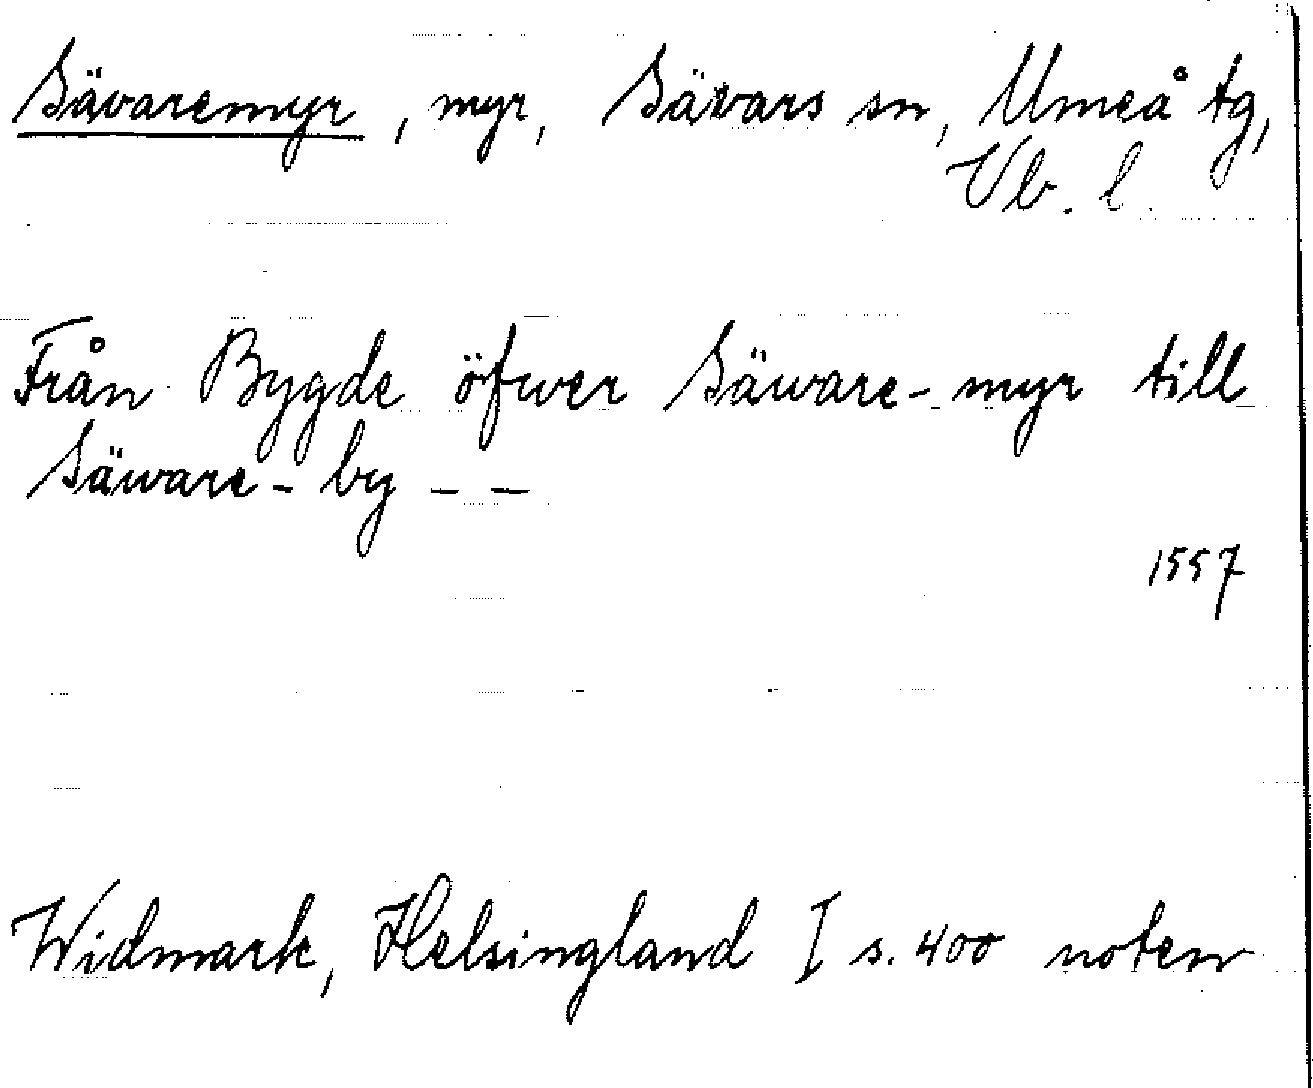 Sävaremyr, myr, Sävars sn, Umeå tg,
Vb. l.
Från Bygde öfwer Säware-myr till
Säware-by – –
1557
Widmark, Helsingland I s. 400 noten